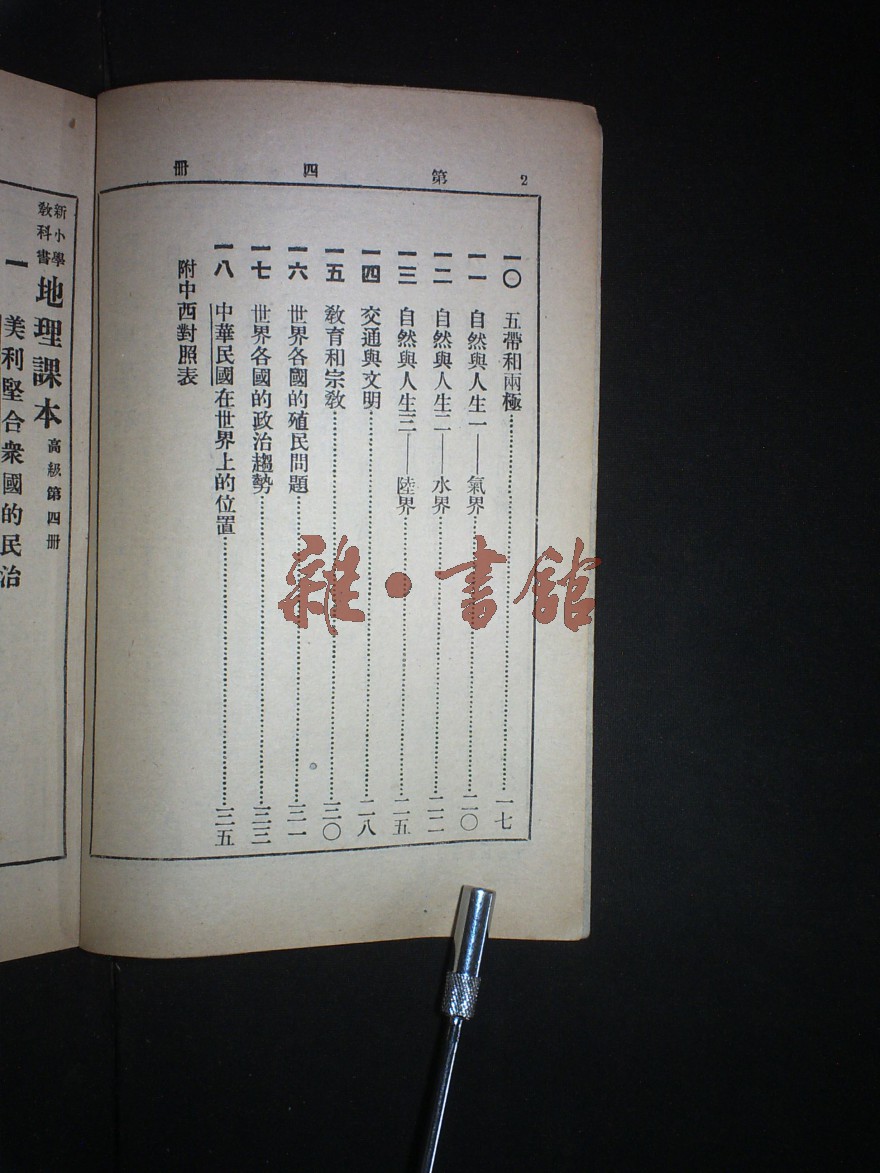 2 第四冊
一〇 五帶和兩極……一七
一一 自然與人生一——氣界……二〇
一二 自然與人生二——水界……二二
一三 自然與人生三——陸界……二五
一四 交通與文明……二八
一五 教育和宗教……三〇
一六 世界各國的殖民問題……三一
一七 世界各國的政治趨勢……三三
一八 中華民國在世界上的位置……三五
附中西對照表
新小學教科書 地理課本 高級第四冊
一 美利堅合衆國的民治
雜·書館